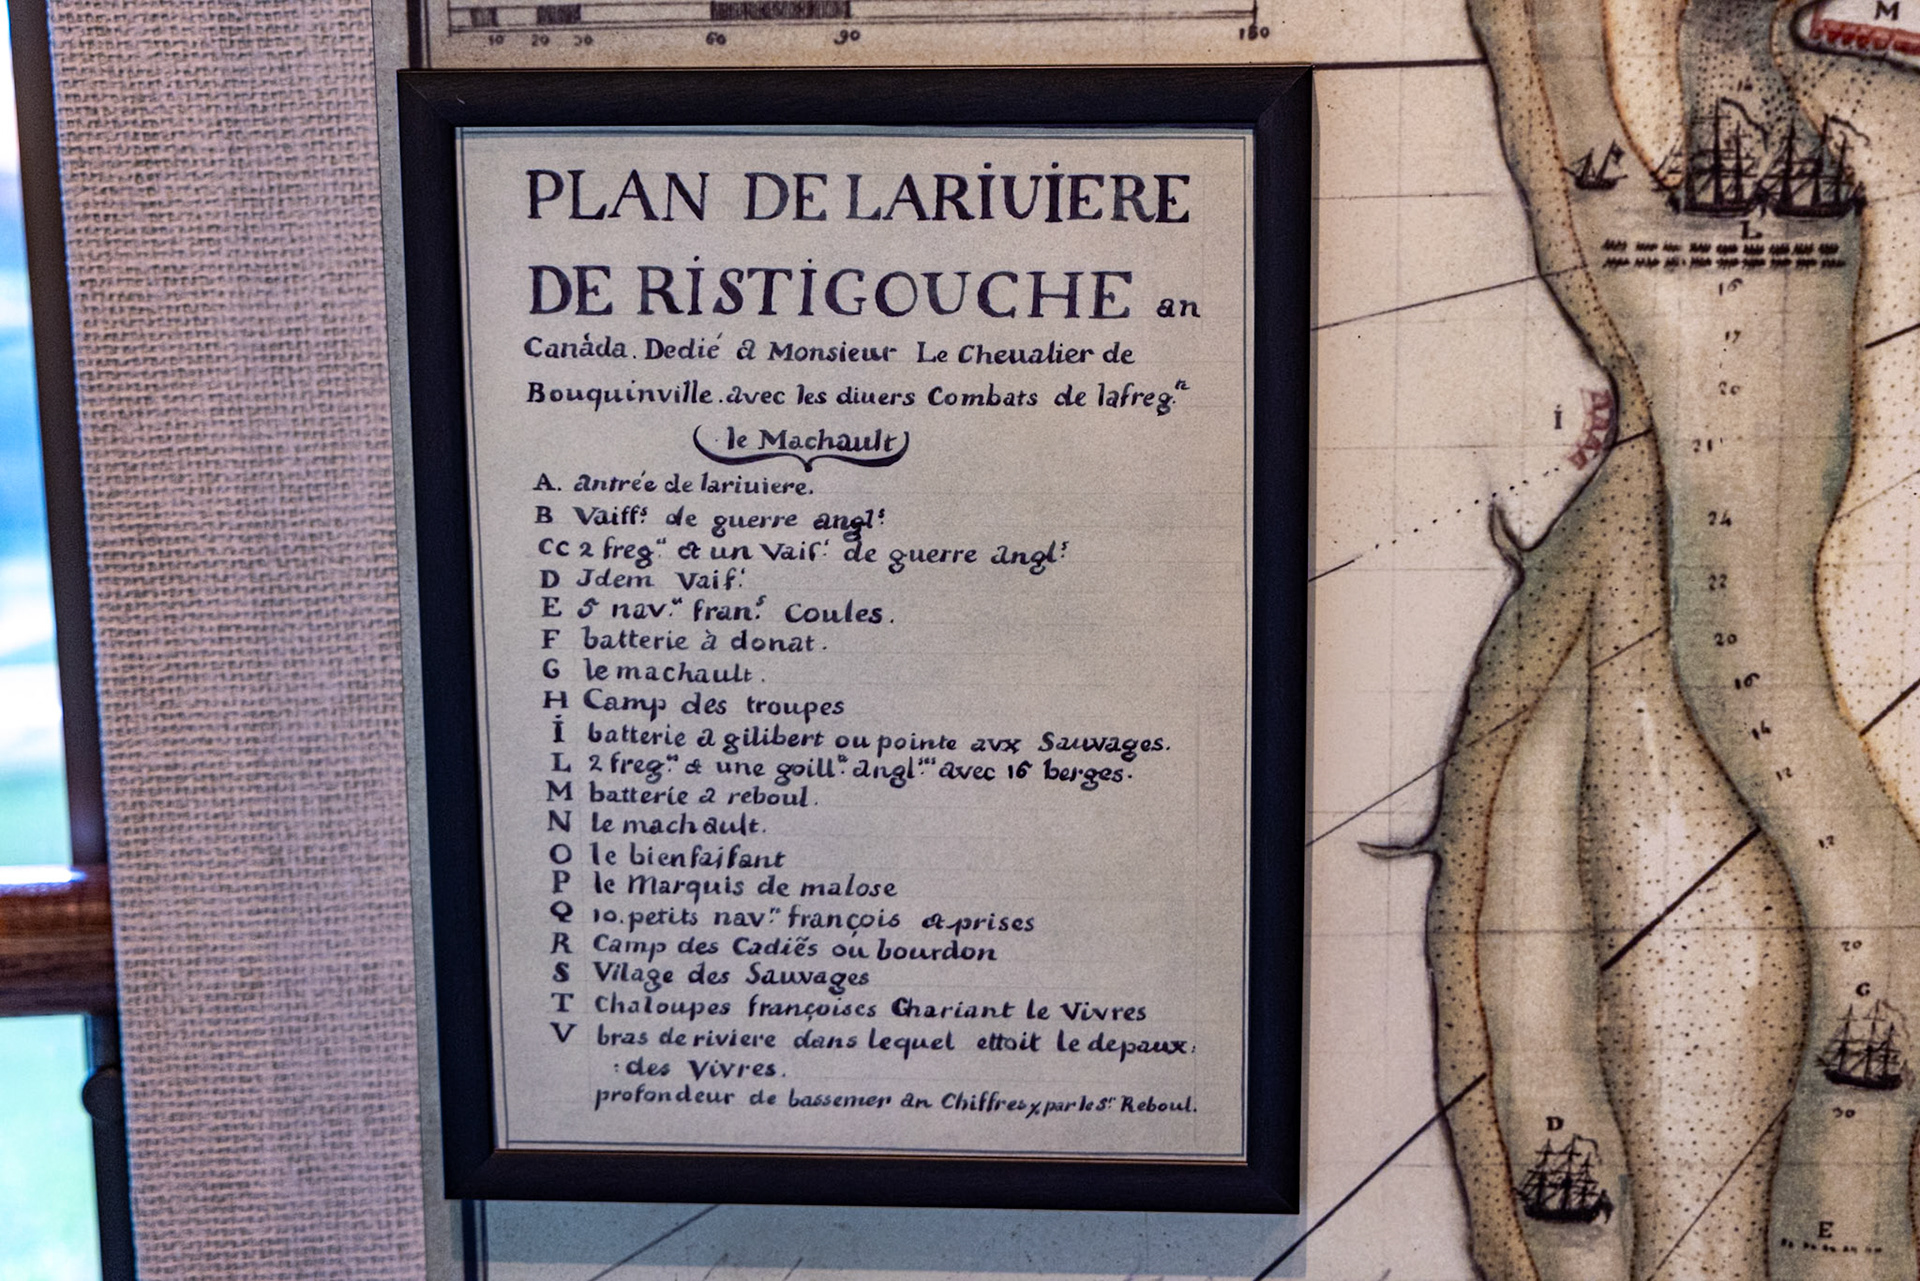 10 20 30 60 90 180
PLAN DE LARIUIERE
DE RISTIGOUCHE an
Canáda. Dedié a Monsieur Le Cheualier de
Bouquinville. avec les diuers Combats de lafreg.n
le Machault
A. antrée de lariuiere.
B Vaiff.s de guerre angl.s
CC 2 freg." & un Vais.' de guerre angl.s
D Jdem Vaif.'
E 5 nav." fran.s Coules.
F batterie à donat.
G le machault.
H Camp des troupes
I batterie a gilibert ou pointe avx Sauvages.
L 2 freg." & une goill." angl." avec 16 berges.
M batterie a reboul.
N le machault.
O le bienfaifant
P le Marquis de malose
Q 10. petits nav." françois & prises
R Camp des Cadiés ou bourdon
S Vilage des Sauvages
T Chaloupes françoises Chariant le Vivres
V bras de riviere dans lequel ettoit le depaux:
: des Vivres.
profondeur de bassemer an Chiffres par le Sr Reboul.
M
L
16
17
20
I
21
24
22
20
16
14
12
12
20
G
30
D
E